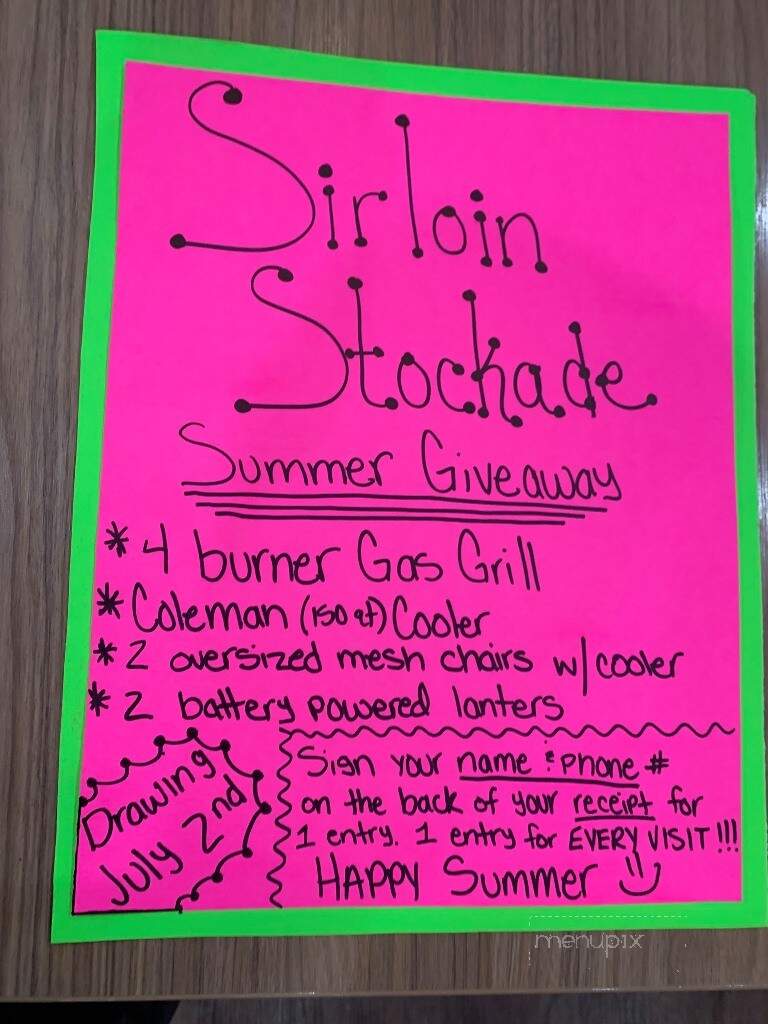 Sirloin
Stockade
Summer Giveaway
* 4 burner Gas Grill
* Coleman (150 qt) Cooler
* 2 oversized mesh chairs w/cooler
* 2 battery powered lanters
Drawing
July 2nd
Sign your name & phone #
on the back of your receipt for
1 entry. 1 entry for EVERY VISIT!!!
HAPPY Summer
menupix